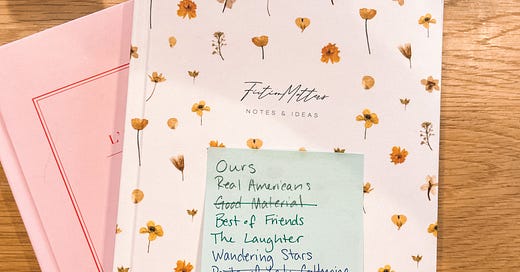 FictionMatters
NOTES & IDEAS
Ours
Real Americans
Good Material
Best of Friends
The Laughter
Wandering Stars